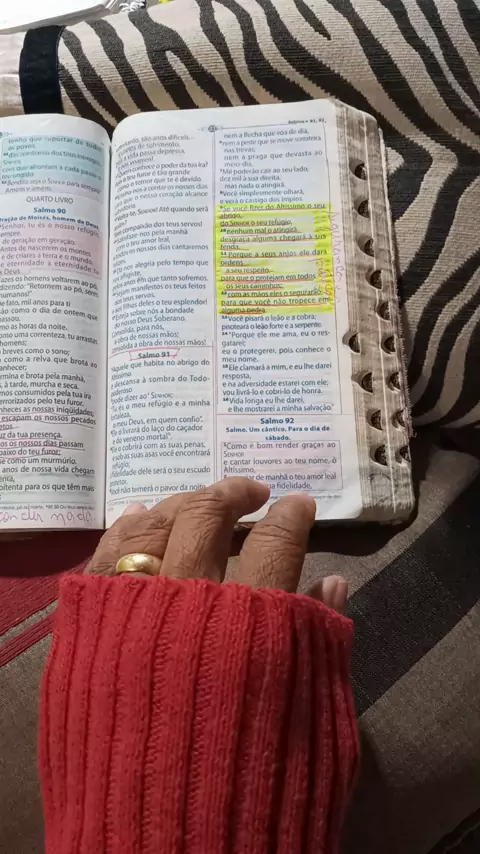 tenho que suportar de todos
os povos,
das contantes dos teus inimigos
com que afrontam a cada passo o
teu ungido.
Bendito seja o SENHOR para sempre!
Amém e amém.
QUARTO LIVRO
Salmo 90
Oração de Moisés, homem de Deus.
Senhor, tu és o nosso refúgio,
sempre,
de geração em geração.
Antes de nascerem os montes
e de criares a terra e o mundo,
de eternidade a eternidade tu
és Deus.
Fazes os homens voltarem ao pó,
dizendo: "Retornem ao pó, seres
humanos!"
De fato, mil anos para ti
são como o dia de ontem que
passou,
como as horas da noite.
Como uma correnteza, tu arrastas
os homens;
são breves como o sono;
são como a relva que brota ao
amanhecer;
germina e brota pela manhã,
mas, à tarde, murcha e seca.
Somos consumidos pela tua ira
aterrorizados pelo teu furor.
Conheces as nossas iniquidades;
não escapam os nossos pecados
à luz da tua presença.
Todos os nossos dias passam
debaixo do teu furor;
como um murmúrio.
Os anos de nossa vida chegam
a setenta,
ou a oitenta para os que têm mais
vigor;
entretanto, são anos difíceis...
de sofrimento,
a vida passa depressa,
e nós voamos!
Quem conhece o poder da tua ira?
Pois o teu furor é tão grande
como o temor que te é devido.
Ensina-nos a contar os nossos dias
para que o nosso coração alcance
sabedoria.
Volta-te, SENHOR! Até quando será
assim?
Tem compaixão dos teus servos!
Satisfaze-nos pela manhã
com o teu amor leal,
e todos os nossos dias cantaremos
felizes.
Dá-nos alegria pelo tempo que
nos afligiste,
pelos anos em que tanto sofremos.
Sejam manifestos os teus feitos
aos teus servos,
e aos filhos deles o teu esplendor!
Esteja sobre nós a bondade
do nosso Deus Soberano.
Consolida, para nós,
a obra de nossas mãos;
consolida a obra de nossas mãos!
Salmo 91
Aquele que habita no abrigo do
Altíssimo
e descansa à sombra do Todo-
poderoso
pode dizer ao SENHOR:
"Tu és o meu refúgio e a minha
fortaleza,
o meu Deus, em quem confio".
Ele o livrará do laço do caçador
e do veneno mortal.
Ele o cobrirá com as suas penas,
e sob as suas asas você encontrará
refúgio;
a fidelidade dele será o seu escudo
protetor.
Você não temerá o pavor da noite,
nem a flecha que voa de dia,
nem a peste que se move sorrateira
nas trevas,
nem a praga que devasta ao
meio-dia.
Mil poderão cair ao seu lado;
dez mil, à sua direita,
mas nada o atingirá.
Você simplesmente olhará,
e verá o castigo dos ímpios.
Se você fizer do Altíssimo o seu
abrigo,
do SENHOR o seu refúgio,
nenhum mal o atingirá,
desgraça alguma chegará à sua
tenda.
Porque a seus anjos ele dará
ordens
a seu respeito,
para que o protejam em todos
os seus caminhos;
com as mãos eles o segurarão,
para que você não tropece em
alguma pedra.
Você pisará o leão e a cobra;
pisoteará o leão forte e a serpente.
"Porque ele me ama, eu o res-
gatarei;
eu o protegerei, pois conhece o
meu nome.
Ele clamará a mim, e eu lhe darei
resposta,
e na adversidade estarei com ele;
vou livrá-lo e cobri-lo de honra.
Vida longa eu lhe darei,
e lhe mostrarei a minha salvação."
Salmo 92
Salmo. Um cântico. Para o dia de
sábado.
Como é bom render graças ao
SENHOR
e cantar louvores ao teu nome, ó
Altíssimo,
de manhã o teu amor leal
sua fidelidade,